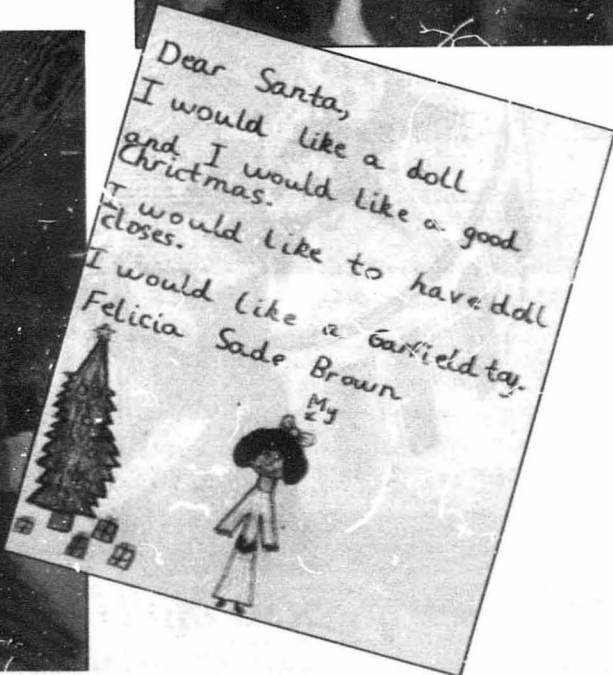 Dear Santa,
I would like a doll
and I would like a good
Chrictmas.
I would like to have doll
closes.
I would like a Garfield toy.
Felicia Sade Brown
My